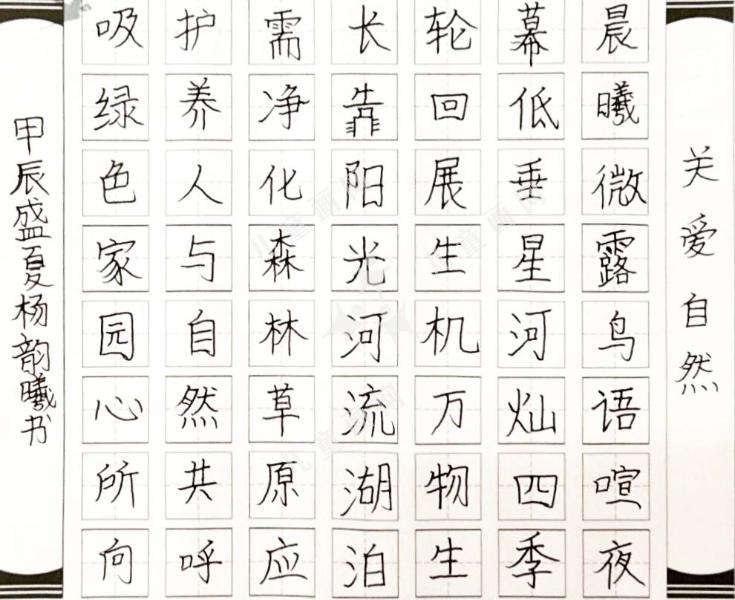 关爱自然
晨曦微露鸟语喧夜
幕低垂星河灿四季
轮回展生机万物生
长靠阳光河流湖泊
需净化森林草原应
护养人与自然共呼
吸绿色家园心所向
甲辰盛夏杨韵曦书